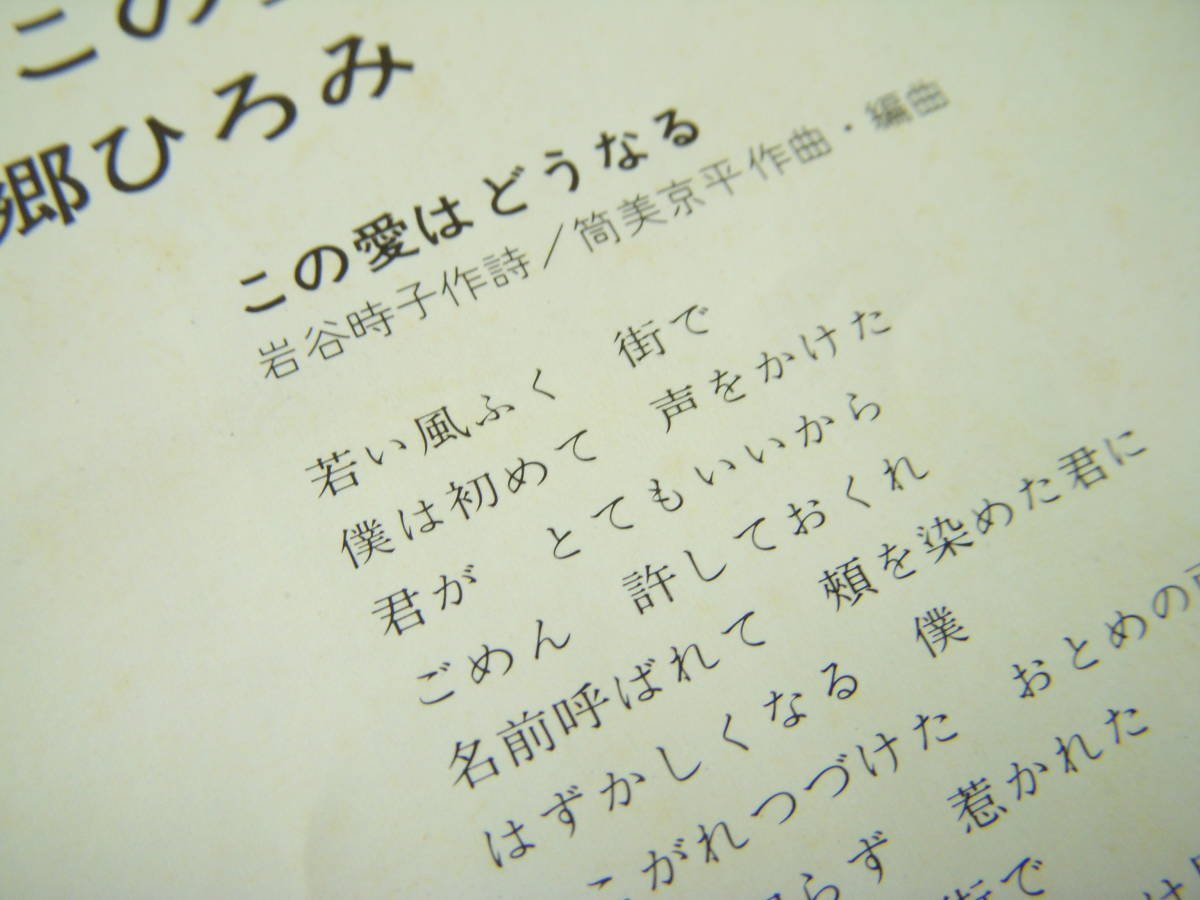 この
郷ひろみ
この愛はどうなる
岩谷時子作詩／筒美京平作曲・編曲
若い風ふく　街で
僕は初めて　声をかけた
君が　とてもいいから
ごめん　許しておくれ
名前呼ばれて　頬を染めた君に
はずかしくなる　僕
こがれつづけた　おとめの
らず　惹かれた
街で